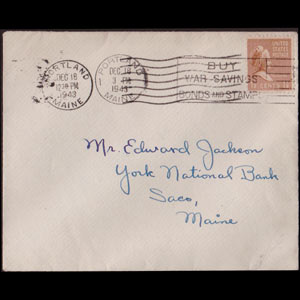 PORTLAND
DEC 18
12 30 PM
1943
MAINE
PORTLAND
DEC 18
1943
MAINE
BUY
WAR SAVINGS
BONDS AND STAMPS
Mr. Edward Jackson
York National Bank
Saco,
Maine